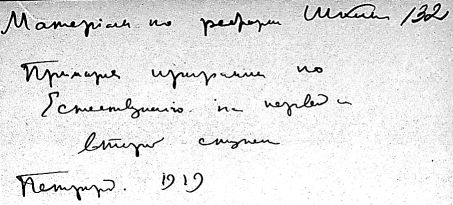 Материалы по реформе Школы 132
Примерная программа по
Естествознанию на первой и
второй ступени
Петроград. 1919